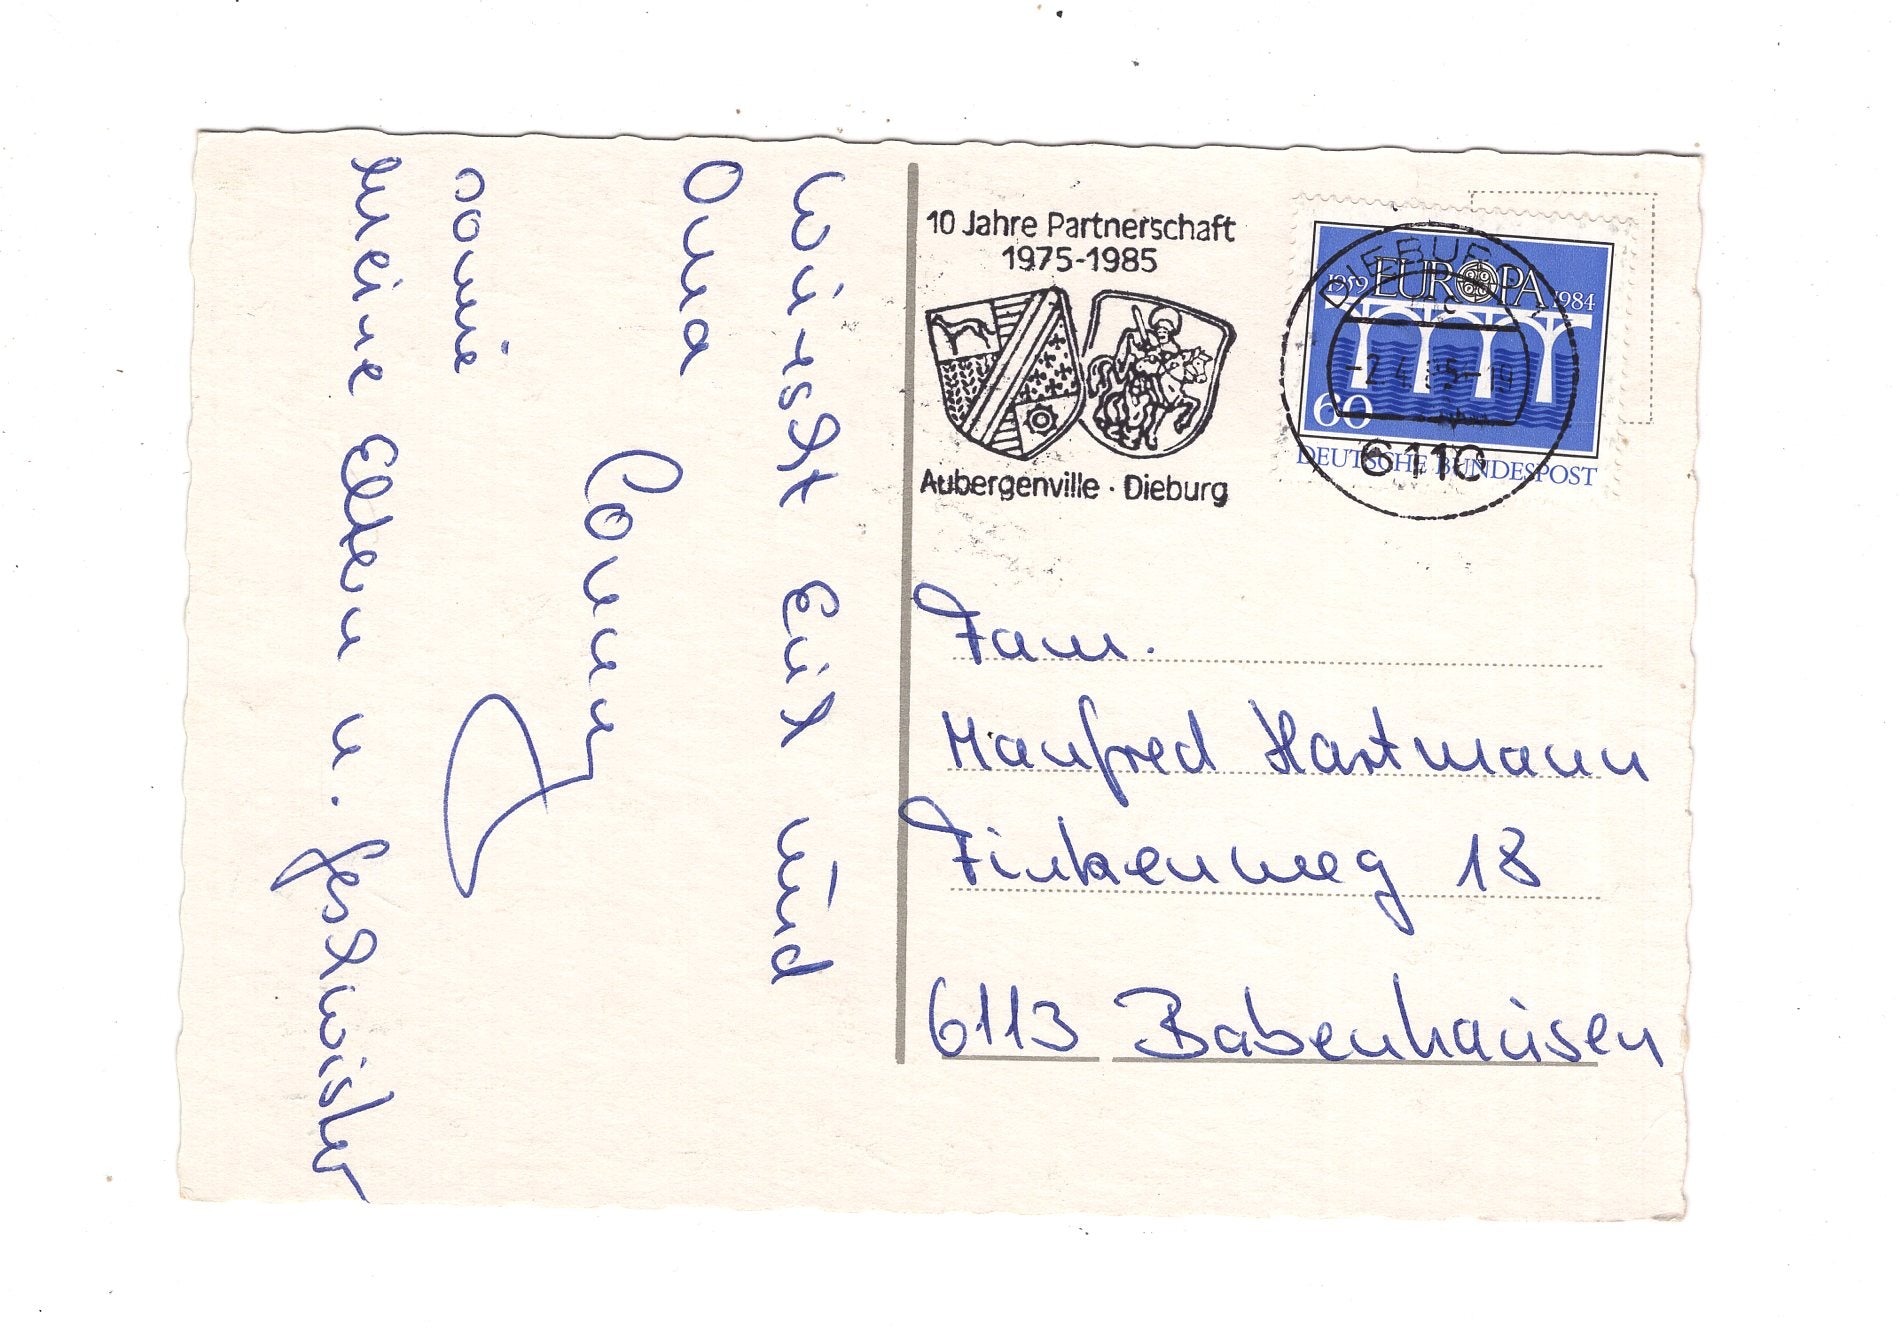 wünscht Euch und
Oma
Conny
sowie
meine Eltern u. Geschwister
10 Jahre Partnerschaft
1975-1985
Aubergenville · Dieburg
1959 EUROPA 1984
60
DEUTSCHE BUNDESPOST
DIEBURG 1
6110
Fam.
Manfred Hartmann
Finkenweg 18
6113 Babenhausen